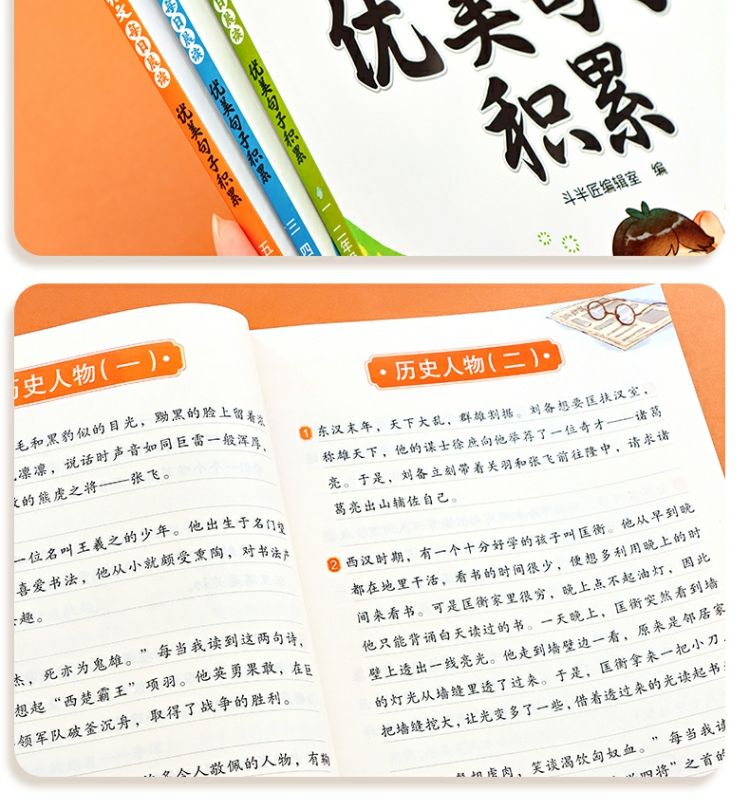 文每日晨读
优美句子积累
五
每日晨读
优美句子积累
三 四
日晨读
优美句子积累
一 二年
优美句
积累
斗半匠编辑室 编
历史人物(一)
毛和黑豹似的目光，黝黑的脸上留着浓
凛凛，说话时声音如同巨雷一般浑厚，
的熊虎之将——张飞。
一位名叫王羲之的少年。他出生于名门望
喜爱书法，他从小就颇受熏陶，对书法产
趣。
杰，死亦为鬼雄。”每当我读到这两句诗，
想起“西楚霸王”项羽。他英勇果敢，在巨
领军队破釜沉舟，取得了战争的胜利。
多令人敬佩的人物，有鞠
历史人物(二)
1 东汉末年，天下大乱，群雄割据。刘备想要匡扶汉室，
称雄天下，他的谋士徐庶向他举荐了一位奇才——诸葛
亮。于是，刘备立刻带着关羽和张飞前往隆中，请求诸
葛亮出山辅佐自己。
2 西汉时期，有一个十分好学的孩子叫匡衡。他从早到晚
都在地里干活，看书的时间很少，便想多利用晚上的时
间来看书。可是匡衡家里很穷，晚上点不起油灯，因此
他只能背诵白天读过的书。一天晚上，匡衡突然看到墙
壁上透出一线亮光。他走到墙壁边一看，原来是邻居家
的灯光从墙缝里透了过来。于是，匡衡拿来一把小刀
把墙缝挖大，让光变多了一些，借着透过来的光读起书
餐胡虏肉，笑谈渴饮匈奴血。”每当我读
四将”之首的